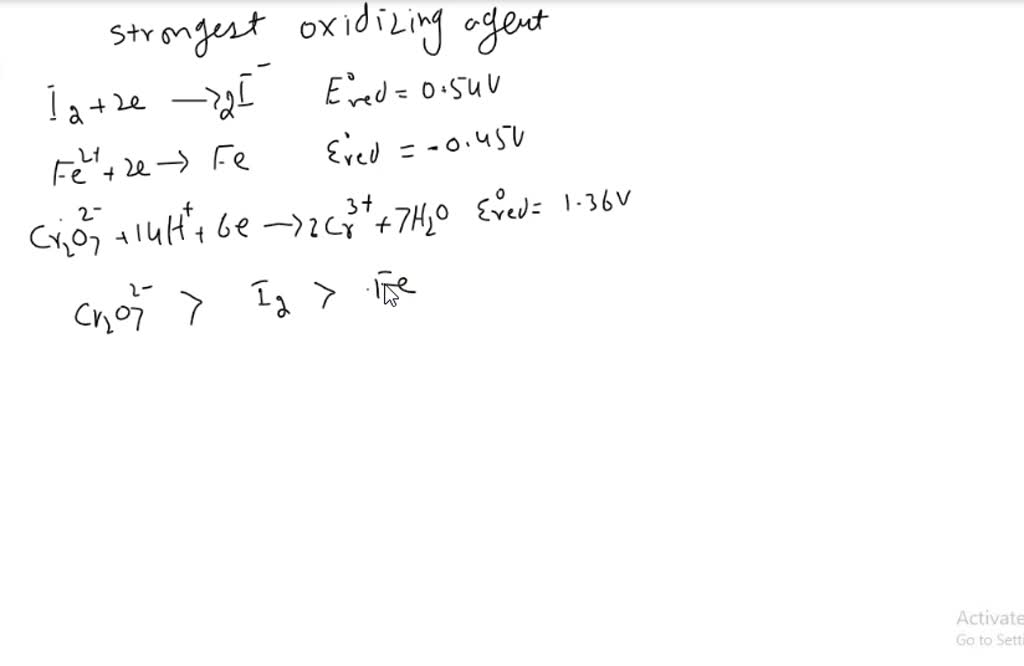 strongest oxidizing agent
I2 + 2e → 2I⁻ E°red = 0.54V
Fe²⁺ + 2e → Fe E°red = -0.45V
Cr2O7²⁻ + 14H⁺ + 6e → 2Cr³⁺ + 7H2O E°red = 1.36V
Cr2O7²⁻ > I2 > Fe
Activate
Go to Setti